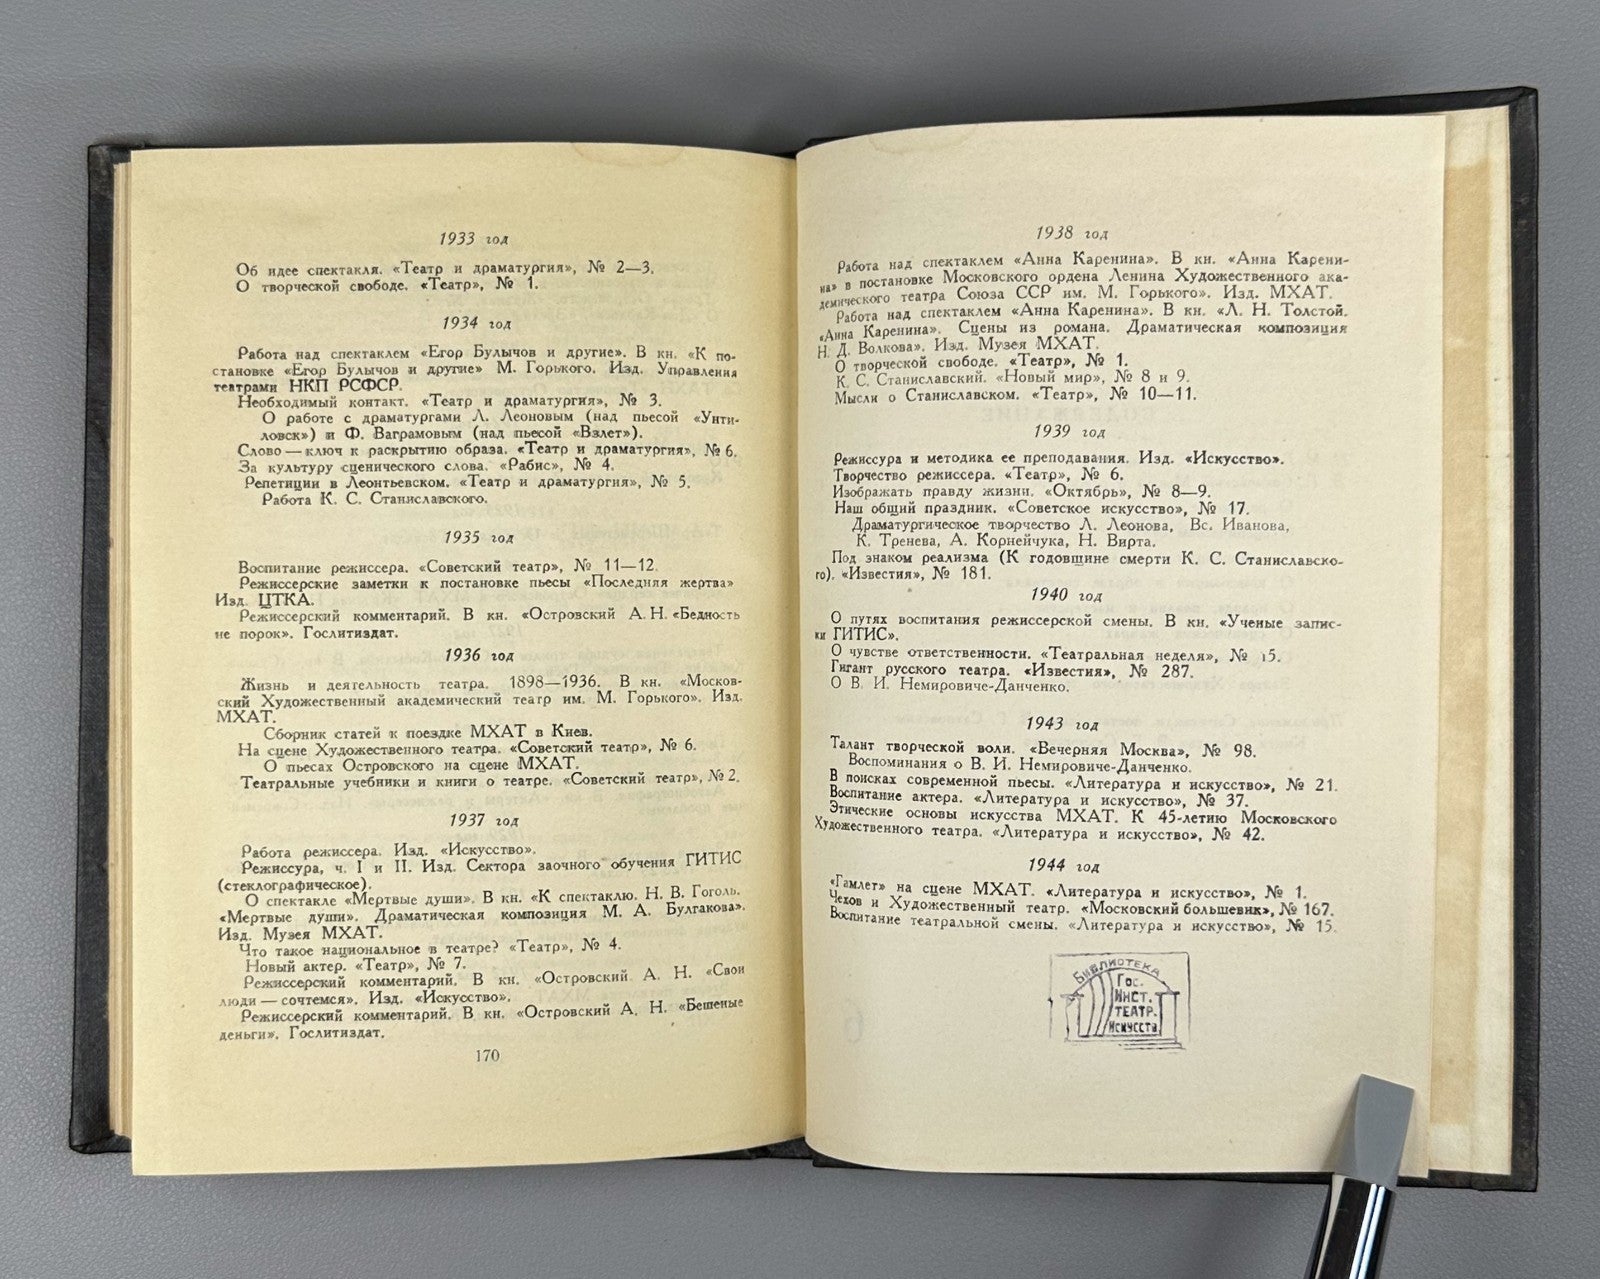 1933 год
Об идее спектакля. «Театр и драматургия», № 2—3.
О творческой свободе. «Театр», № 1.
1934 год
Работа над спектаклем «Егор Булычов и другие». В кн. «К по-
становке «Егор Булычов и другие» М. Горького. Изд. Управления
театрами НКП РСФСР.
Необходимый контакт. «Театр и драматургия», № 3.
О работе с драматургами Л. Леоновым (над пьесой «Унти-
ловск») и Ф. Ваграмовым (над пьесой «Взлет»).
Слово — ключ к раскрытию образа. «Театр и драматургия», № 6.
За культуру сценического слова. «Рабис», № 4.
Репетиции в Леонтьевском. «Театр и драматургия», № 5.
Работа К. С. Станиславского.
1935 год
Воспитание режиссера. «Советский театр», № 11—12.
Режиссерские заметки к постановке пьесы «Последняя жертва»
Изд. ЦТКА.
Режиссерский комментарий. В кн. «Островский А. Н. «Бедность
не порок». Гослитиздат.
1936 год
Жизнь и деятельность театра. 1898—1936. В кн. «Москов-
ский Художественный академический театр им. М. Горького». Изд.
МХАТ.
Сборник статей к поездке МХАТ в Киев.
На сцене Художественного театра. «Советский театр», № 6.
О пьесах Островского на сцене МХАТ.
Театральные учебники и книги о театре. «Советский театр», № 2.
1937 год
Работа режиссера. Изд. «Искусство».
Режиссура, ч. I и II. Изд. Сектора заочного обучения ГИТИС
(стеклографическое).
О спектакле «Мертвые души». В кн. «К спектаклю. Н. В. Гоголь.
«Мертвые души». Драматическая композиция М. А. Булгакова».
Изд. Музея МХАТ.
Что такое национальное в театре? «Театр», № 4.
Новый актер. «Театр», № 7.
Режиссерский комментарий. В кн. «Островский А. Н. «Свои
люди — сочтемся». Изд. «Искусство».
Режиссерский комментарий. В кн. «Островский А. Н. «Бешеные
деньги». Гослитиздат.
170
1938 год
Работа над спектаклем «Анна Каренина». В кн. «Анна Карени-
на» в постановке Московского ордена Ленина Художественного ака-
демического театра Союза ССР им. М. Горького». Изд. МХАТ.
Работа над спектаклем «Анна Каренина». В кн. «Л. Н. Толстой.
«Анна Каренина». Сцены из романа. Драматическая композиция
Н. Д. Волкова». Изд. Музея МХАТ.
О творческой свободе. «Театр», № 1.
К. С. Станиславский. «Новый мир», № 8 и 9.
Мысли о Станиславском. «Театр», № 10—11.
1939 год
Режиссура и методика ее преподавания. Изд. «Искусство».
Творчество режиссера. «Театр», № 6.
Изображать правду жизни. «Октябрь», № 8—9.
Наш общий праздник. «Советское искусство», № 17.
Драматургическое творчество Л. Леонова, Вс. Иванова,
К. Тренева, А. Корнейчука, Н. Вирта.
Под знаком реализма (К годовщине смерти К. С. Станиславско-
го). «Известия», № 181.
1940 год
О путях воспитания режиссерской смены. В кн. «Ученые запис-
ки ГИТИС».
О чувстве ответственности. «Театральная неделя», № 15.
Гигант русского театра. «Известия», № 287.
О В. И. Немировиче-Данченко.
1943 год
Талант творческой воли. «Вечерняя Москва», № 98.
Воспоминания о В. И. Немировиче-Данченко.
В поисках современной пьесы. «Литература и искусство», № 21.
Воспитание актера. «Литература и искусство», № 37.
Этические основы искусства МХАТ. К 45-летию Московского
Художественного театра. «Литература и искусство», № 42.
1944 год
«Гамлет» на сцене МХАТ. «Литература и искусство», № 1.
Чехов и Художественный театр. «Московский большевик», № 167.
Воспитание театральной смены. «Литература и искусство», № 15.
БИБЛИОТЕКА
Гос.
Инст.
Театр.
Искусств